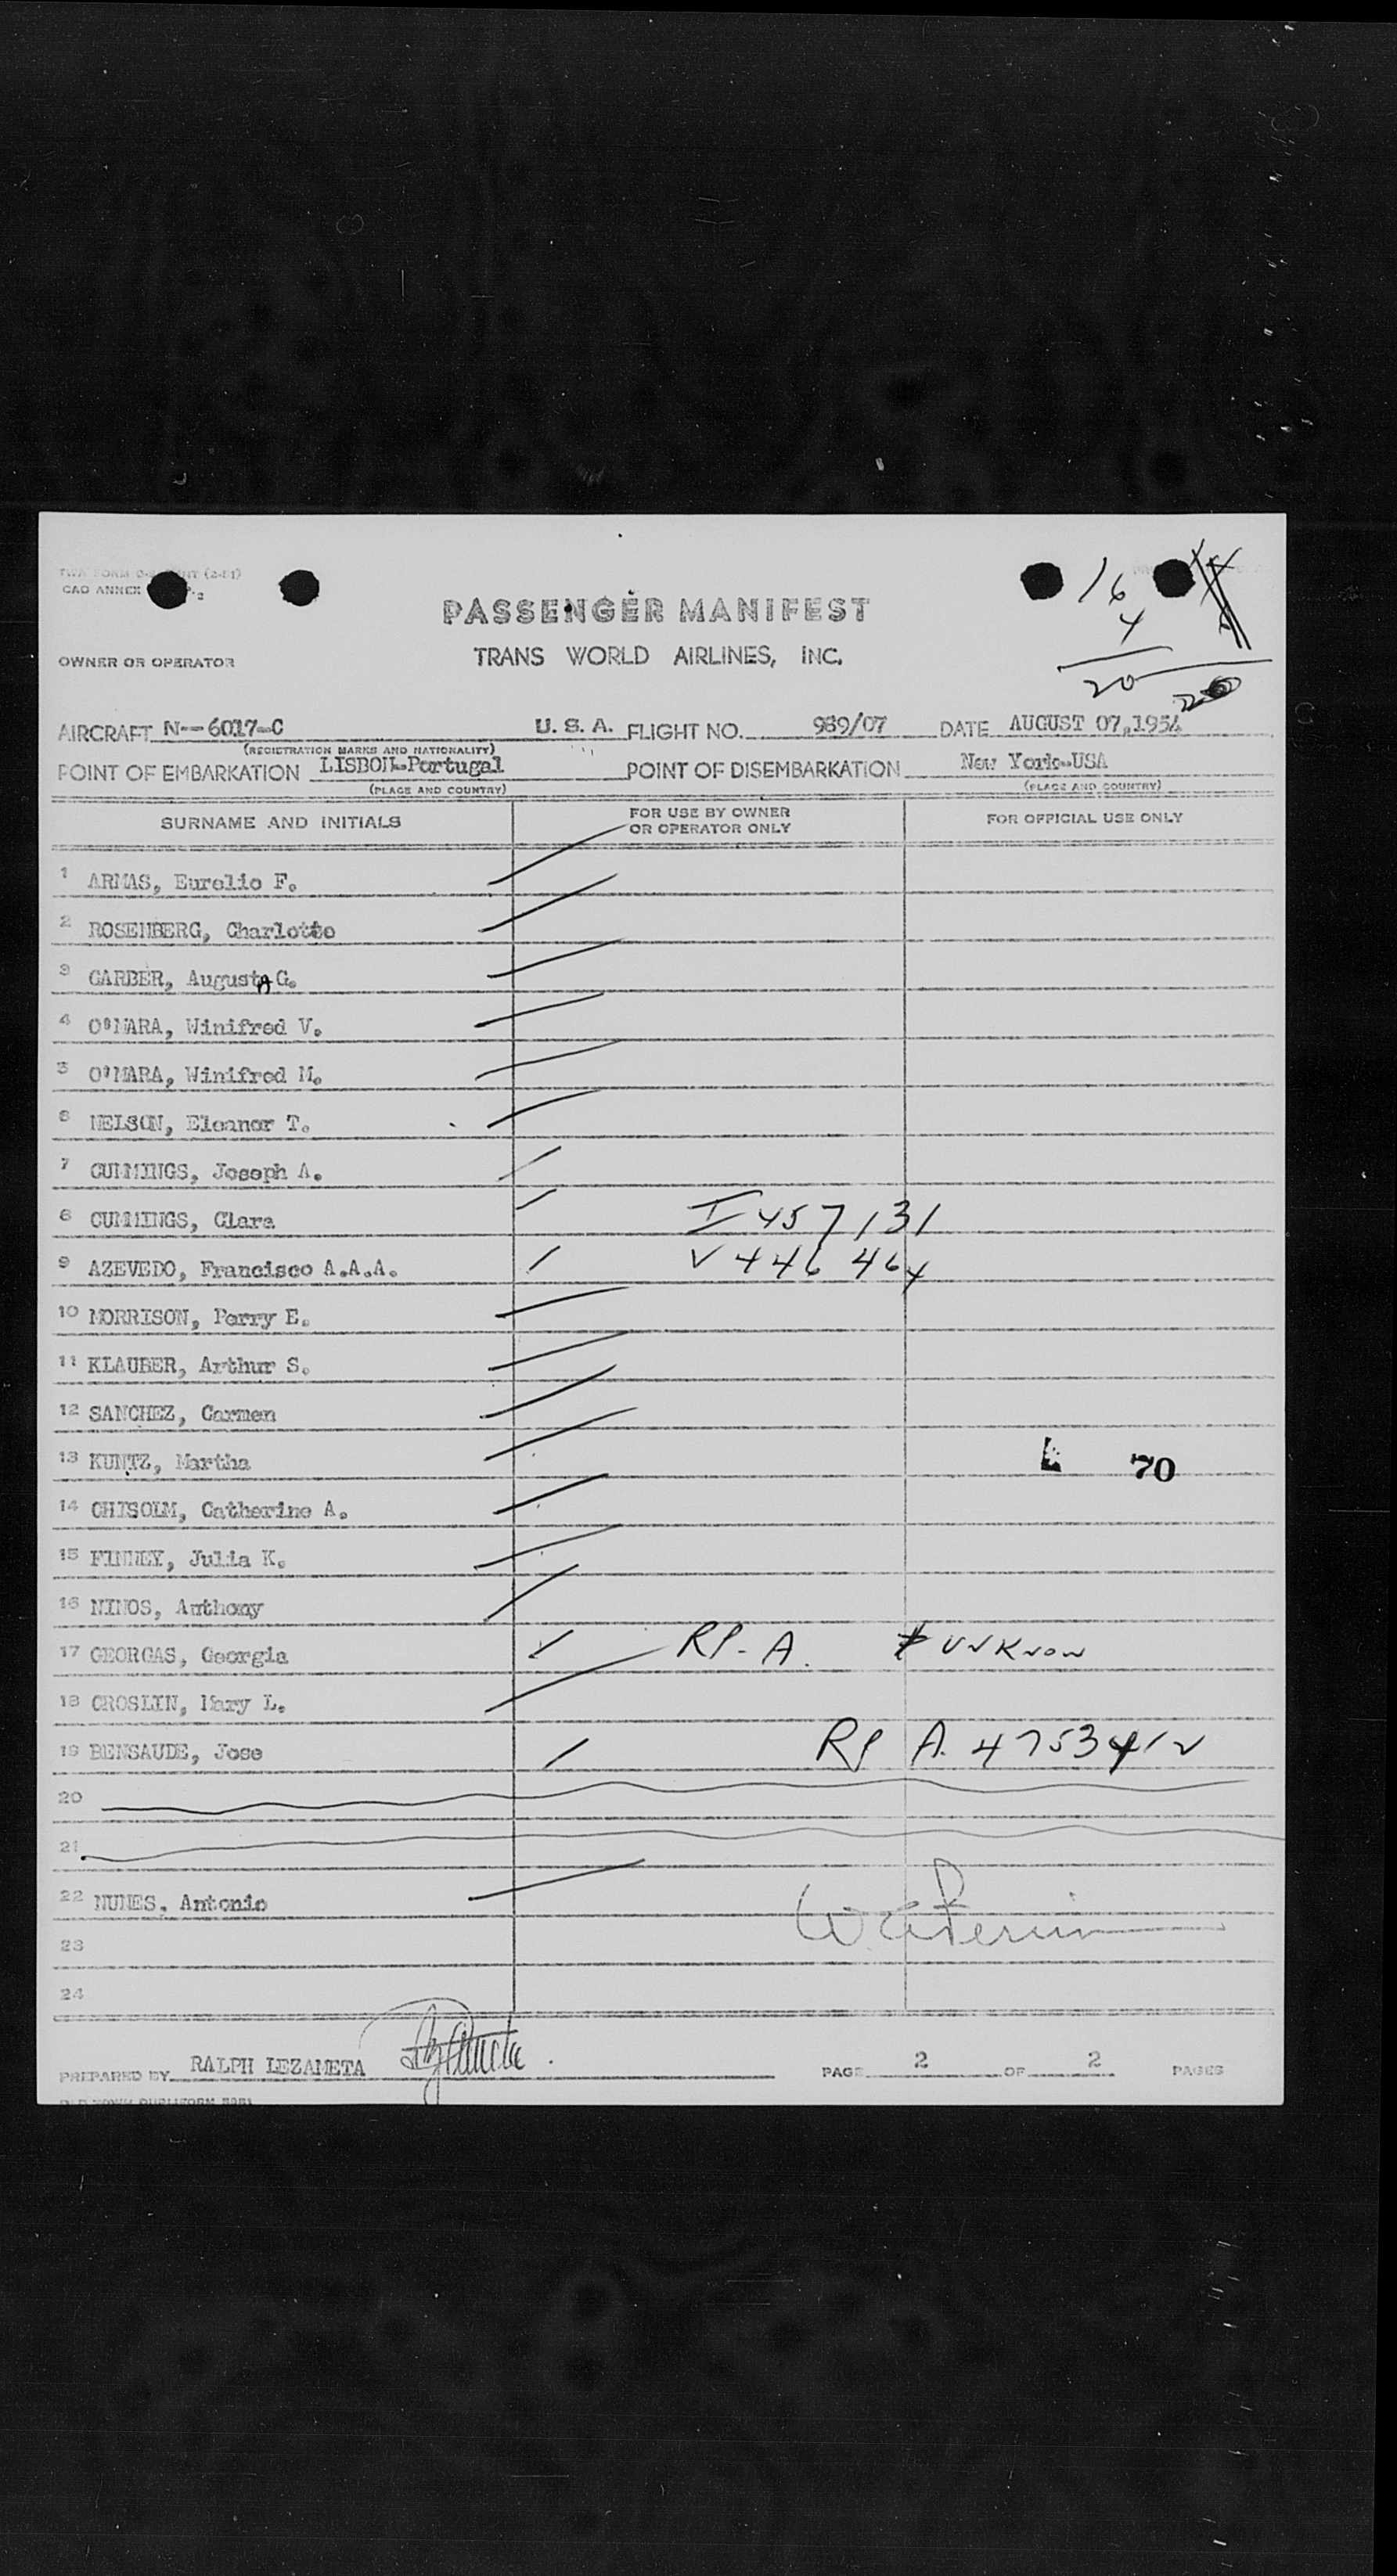 CAO ANNEX
16
4
20
20
PASSENGER MANIFEST
OWNER OR OPERATOR TRANS WORLD AIRLINES, INC.
AIRCRAFT N--6017-C U. S. A. FLIGHT NO. 989/07 DATE AUGUST 07,1954
(REGISTRATION MARKS AND NATIONALITY)
POINT OF EMBARKATION LISBON-Portugal POINT OF DISEMBARKATION New York-USA
(PLACE AND COUNTRY) (PLACE AND COUNTRY)
SURNAME AND INITIALS FOR USE BY OWNER OR OPERATOR ONLY FOR OFFICIAL USE ONLY
1 ARMAS, Eurelio F.
2 ROSENBERG, Charlotte
3 GARBER, Augusta G.
4 O'MARA, Winifred V.
5 O'MARA, Winifred M.
6 NELSON, Eleanor T.
7 CUMMINGS, Joseph A.
8 CUMMINGS, Clara I 457131
9 AZEVEDO, Francisco A.A.A. V 446 464
10 MORRISON, Perry E.
11 KLAUBER, Arthur S.
12 SANCHEZ, Carmen
13 KUNTZ, Martha 70
14 CHISOLM, Catherine A.
15 FINNEY, Julia K.
16 NINOS, Anthony
17 GEORGAS, Georgia RP-A. # UNKNOW
18 CROSLIN, Mary L.
19 BENSAUDE, Jose RP A. 4753412
20
21
22 NUNES, Antonio
23
24
PREPARED BY RALPH LEZAMETA PAGE 2 OF 2 PAGES